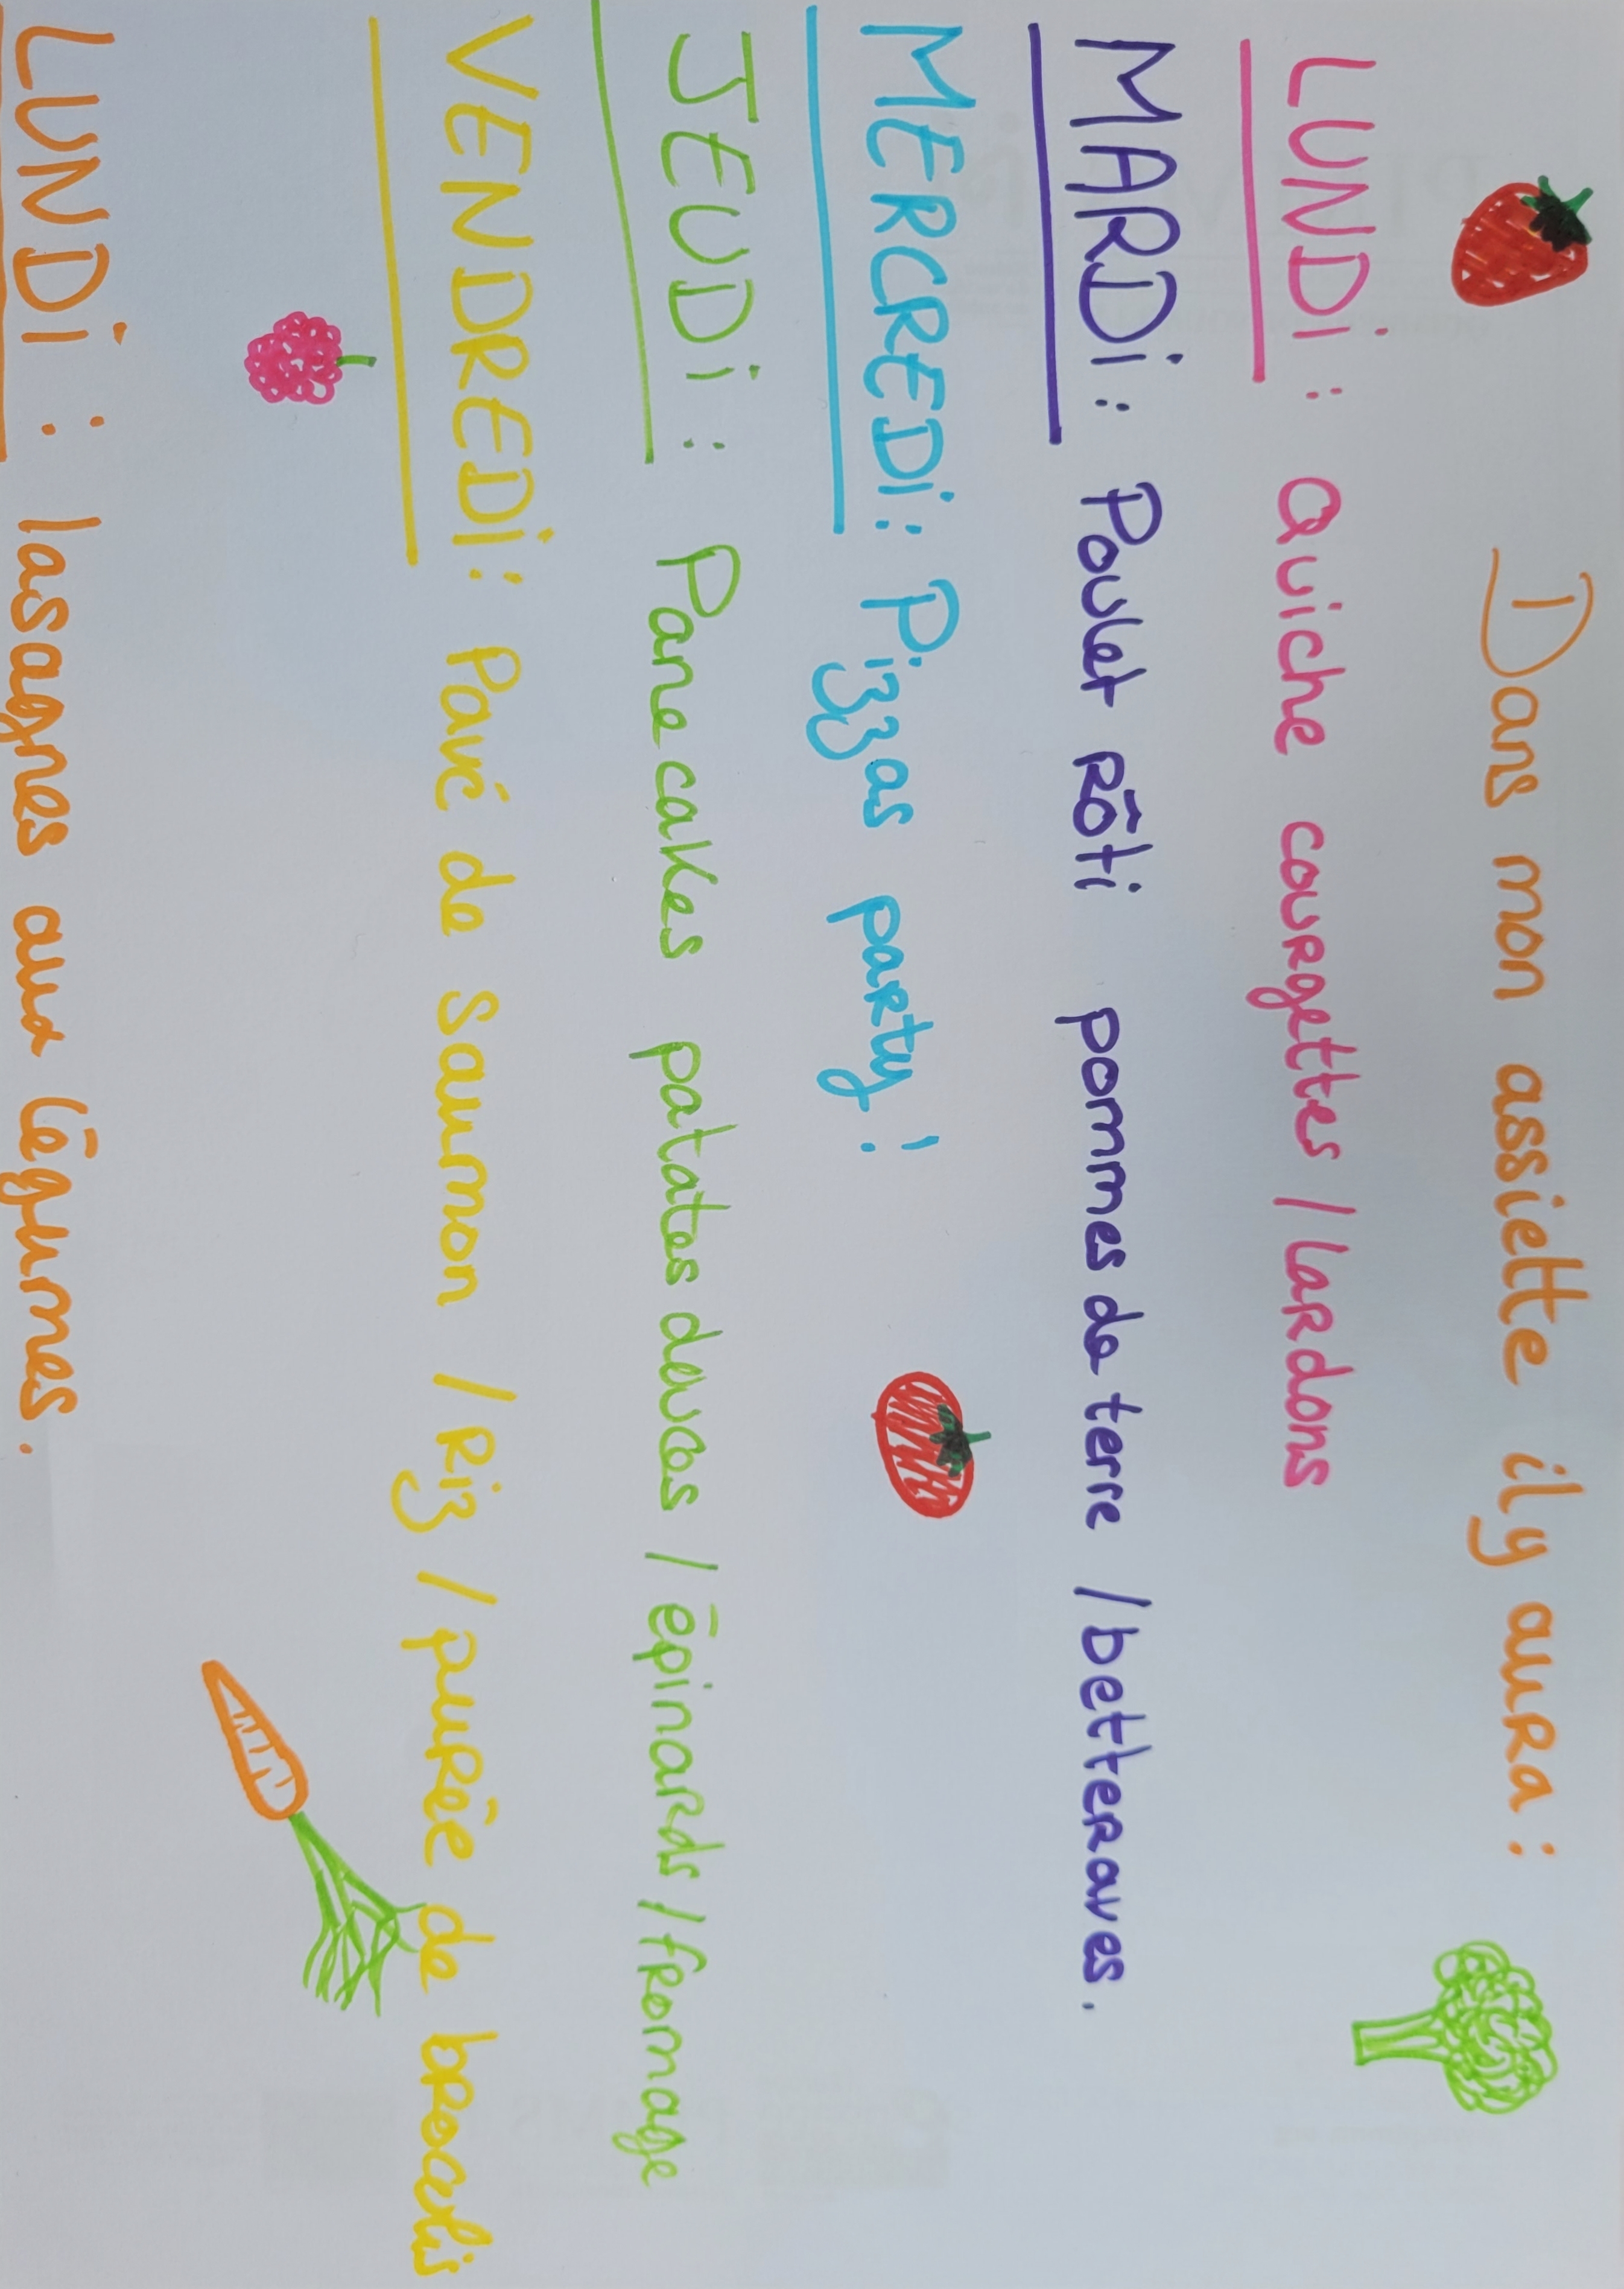 Dans mon assiette il y aura :
LUNDi : Quiche courgettes / Lardons
MARDi : Poulet Rôti pommes de terre / betteraves.
MERCREDi : Pizzas party !
JEUDi : Pane cakes patates douces / épinards / fromage
VENDREDi : Pavé de saumon / Riz / purée de brocolis
LUNDi : lasagnes aux légumes.